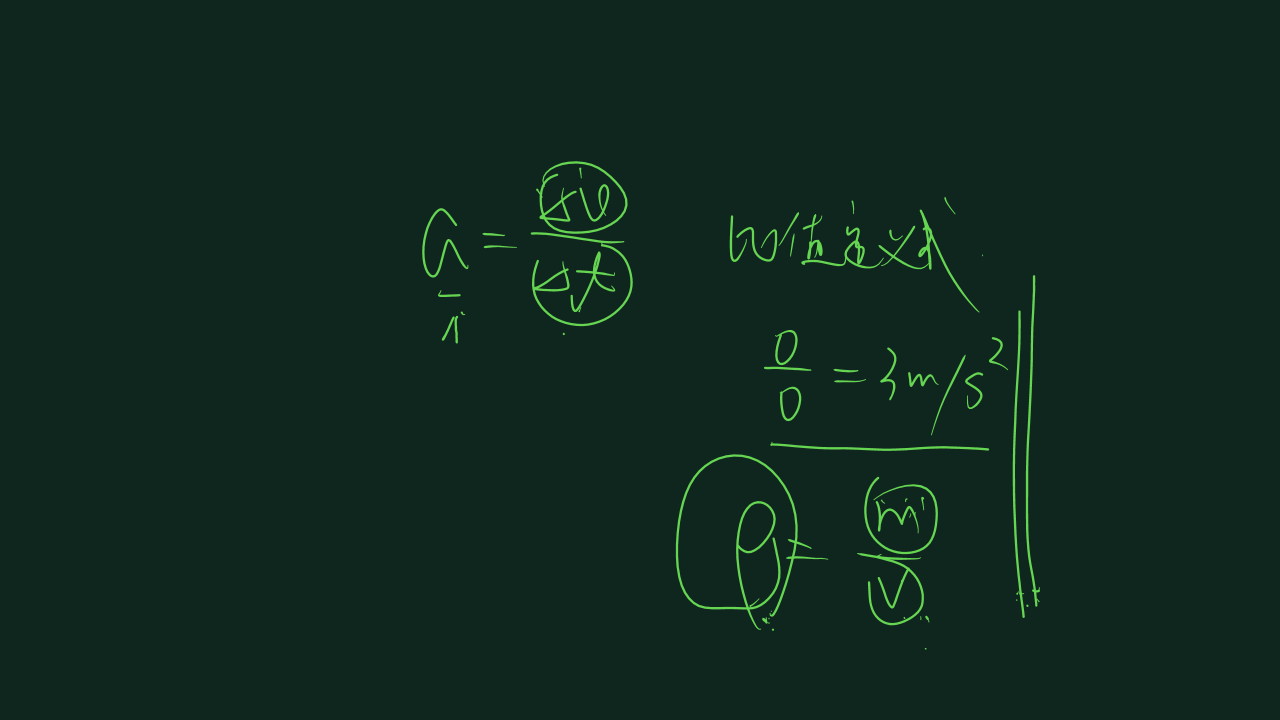 a = Δv / Δt 比值定义式
0 / 0 = 3m/s²
ρ = m / V